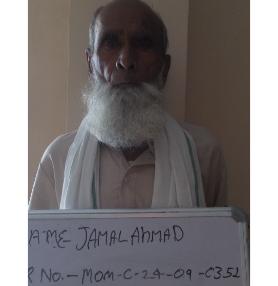 AME JAMAL AHMAD
R No.-MOM-C-24-09-C352